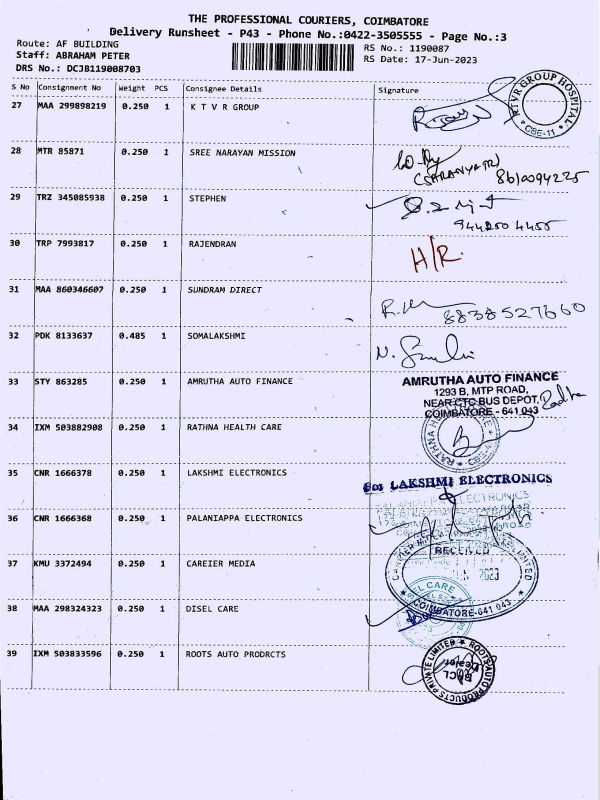 THE PROFESSIONAL COURIERS, COIMBATORE
Delivery Runsheet - P43 - Phone No.:0422-3505555 - Page No.:3
Route: AF BUILDING
Staff: ABRAHAM PETER
DRS No.: DCJB119008703
RS No.: 1190087
RS Date: 17-Jun-2023
S No Consignment No Weight PCS Consignee Details Signature
27 MAA 299898219 0.250 1 K T V R GROUP
KTVR GROUP HOSPITAL
CBE-11
28 MTR 85871 0.250 1 SREE NARAYAN MISSION
(SARANYA TR)
8610094225
29 TRZ 345085938 0.250 1 STEPHEN
944250 4455
30 TRP 7993817 0.250 1 RAJENDRAN
H/R.
31 MAA 860346607 0.250 1 SUNDRAM DIRECT
8838527660
32 PDK 8133637 0.485 1 SOMALAKSHMI
33 STY 863285 0.250 1 AMRUTHA AUTO FINANCE
AMRUTHA AUTO FINANCE
1293 B, MTP ROAD,
NEAR CTC BUS DEPOT,
COIMBATORE - 641 043
Radha
34 IXM 503882908 0.250 1 RATHNA HEALTH CARE
RATHNA HEALTH CARE
35 CNR 1666378 0.250 1 LAKSHMI ELECTRONICS
For LAKSHMI ELECTRONICS
36 CNR 1666368 0.250 1 PALANIAPPA ELECTRONICS
ELECTRONICS
37 KMU 3372494 0.250 1 CAREIER MEDIA
RECEIVED
2023
LIMITED
COIMBATORE-641 043
38 MAA 298324323 0.250 1 DISEL CARE
SEL CARE
39 IXM 503833596 0.250 1 ROOTS AUTO PRODRCTS
ROOTS AUTO PRODUCTS PRIVATE LIMITED
BHCL
Dealer